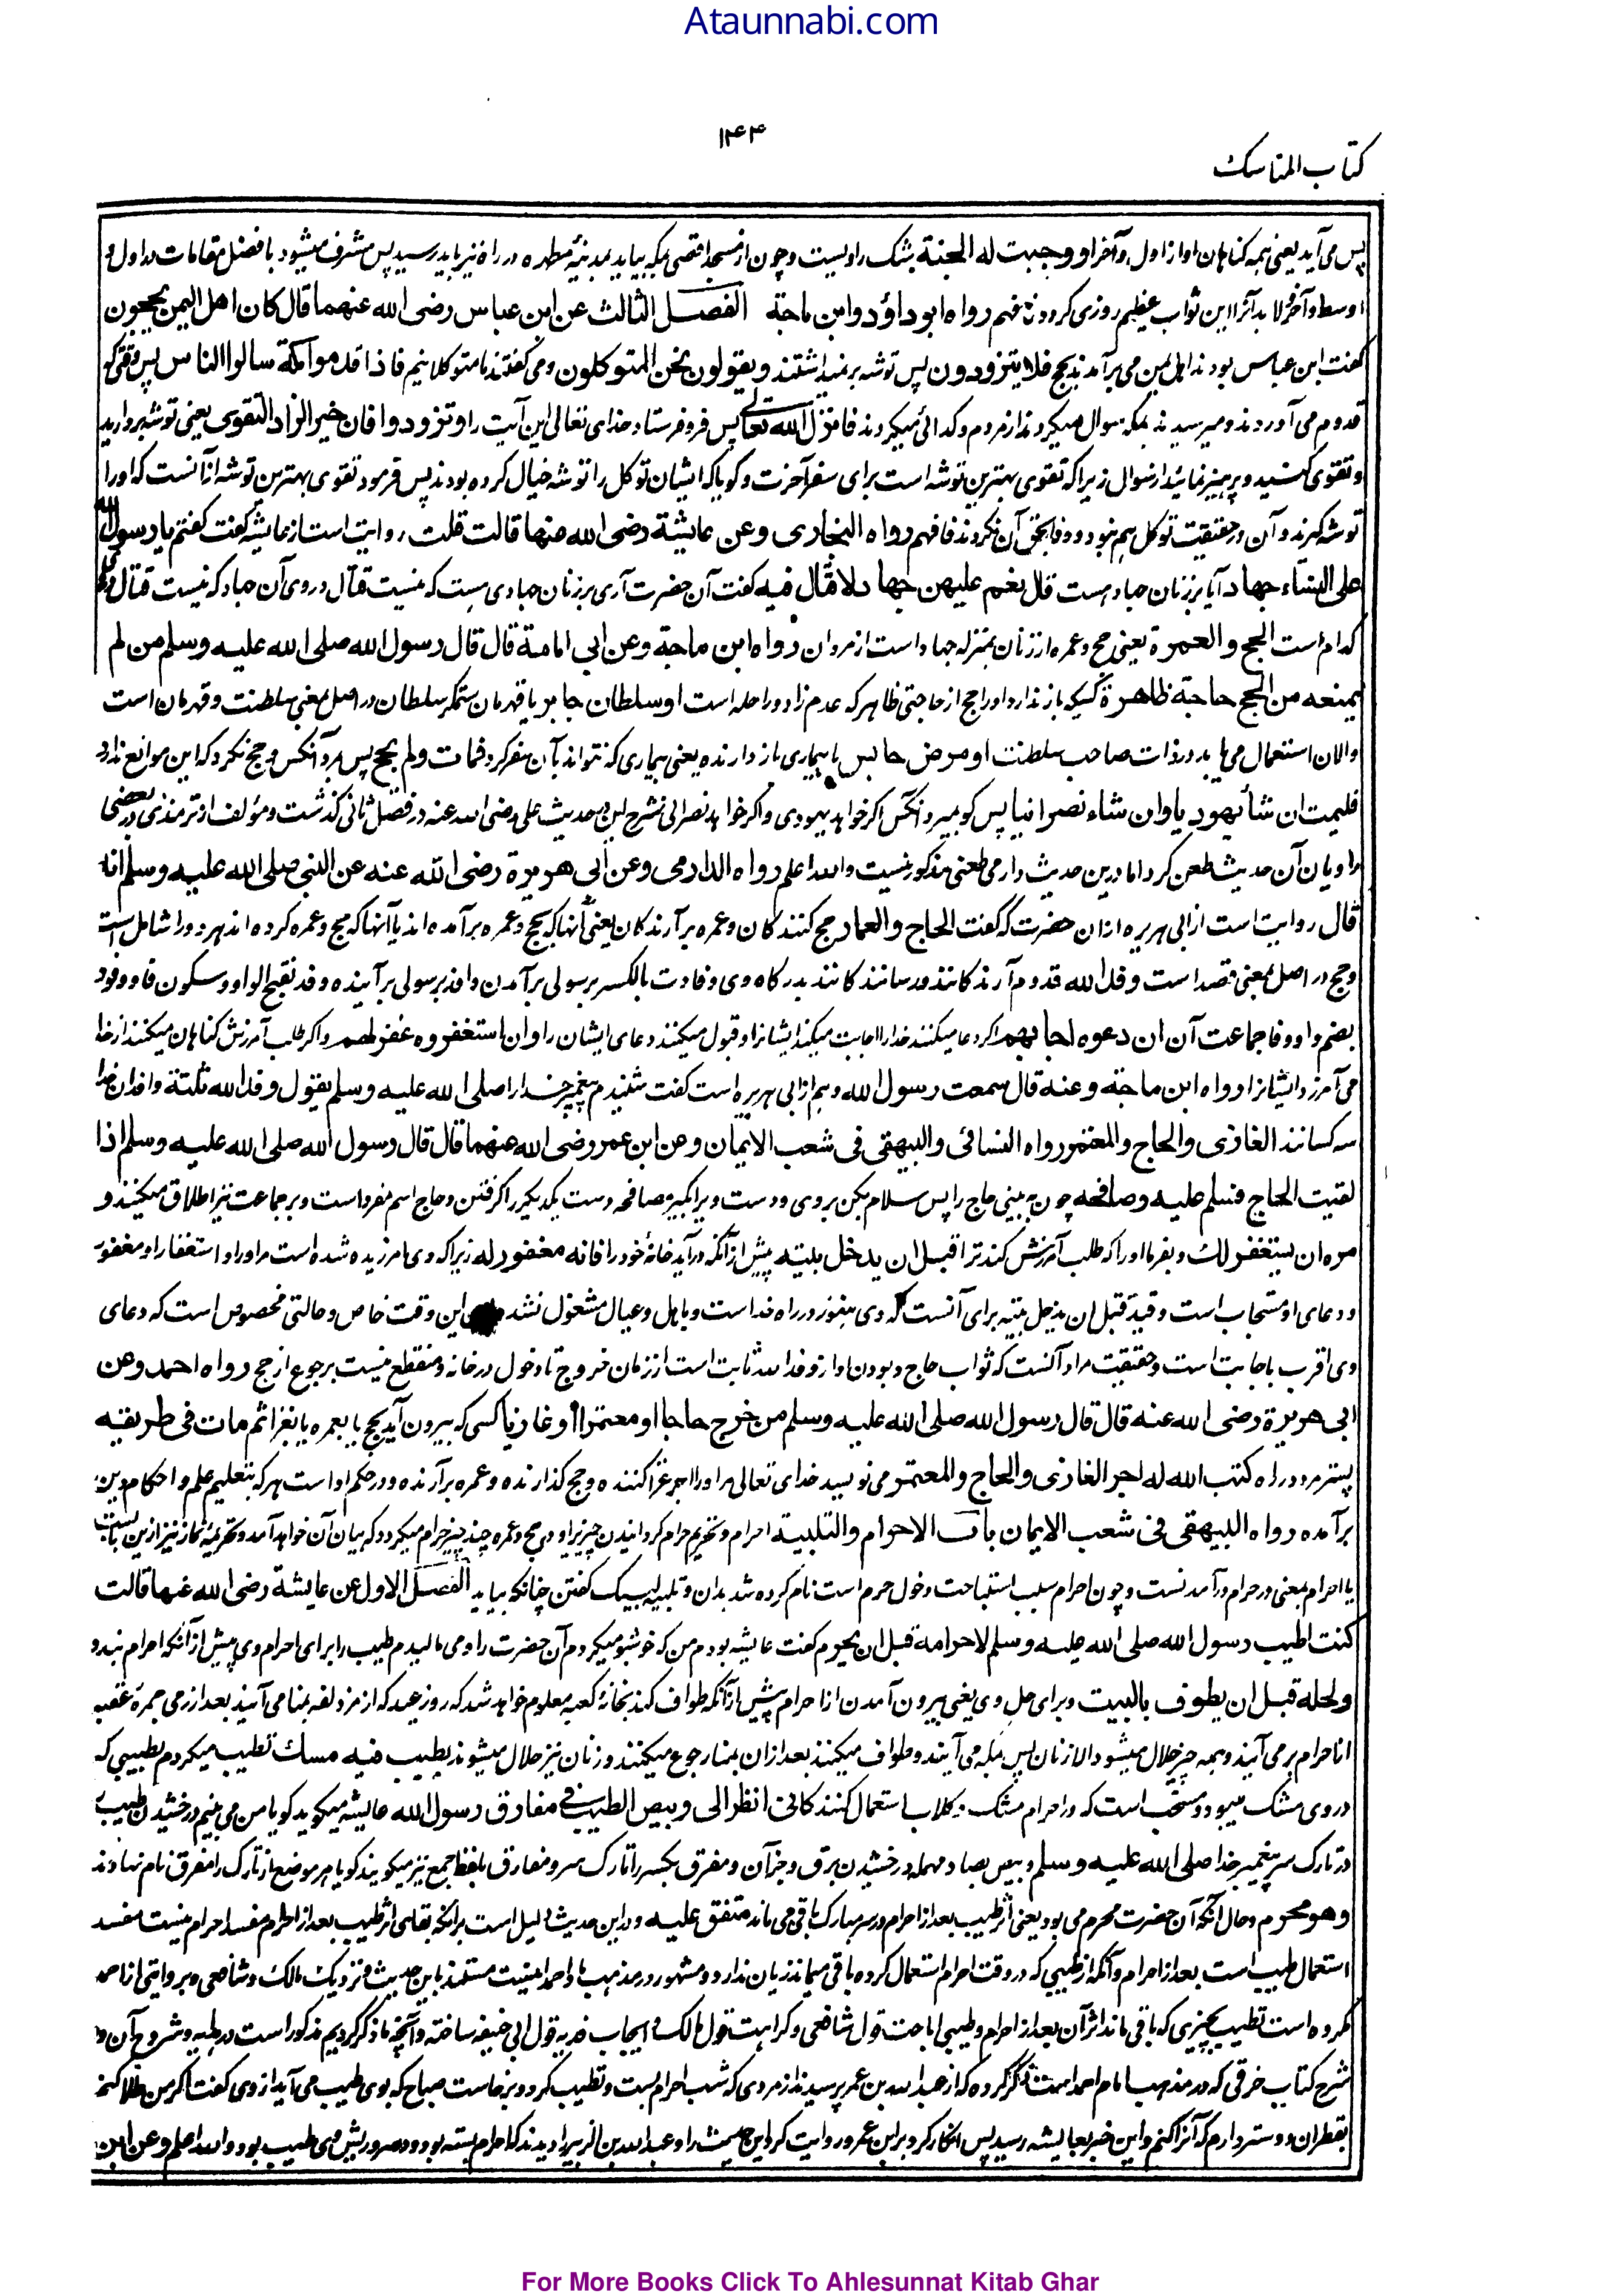 Ataunnabi.com
۱۴۴
کتاب المناسک
پس می آید یعنی ہمہ کناہان او از اول و آخر او وجبت له الجنة بیشک را ویست و چون از مسجد اقصی بمکہ بیاید بمدینۂ مطہرہ در راہ نیز باید رسید پس مشرف میشود بافضل مقامات در اول و
اوسط و آخر لابد آنرا این ثواب عظیم روزی کردد فافہم رواه ابو داؤد وابن ماجة الفصل الثالث عن ابن عباس رضی الله عنهما قال کان اهل الیمن یحجون
کفت ابن عباس بودند اہل یمن می برآمدند بحج فلا یتزودون پس توشہ برنمیداشتند و یقولون نحن المتوکلون ومی کفتند ما متوکلانیم فاذا قدموا مکة سالوا الناس پس وقتی کہ
قدوم می آوردند ومیرسیدند بمکہ سوال میکردند از مردم وکدائی میکردند فانزل الله تعالی پس فرو فرستاد خدای تعالی این آیت را وتزودوا فان خیر الزاد التقوی یعنی توشہ بردارید
وتقوی کنید وپرہیز نمائید از سوال زیرا کہ تقوی بہترین توشہ است برای سفر آخرت وکویا کہ ایشان توکل را توشہ خیال کردہ بودند پس فرمود تقوی بہترین توشہ از آنست کہ او را
توشہ کیرند و آن در حقیقت توکل ہم نبود و وفا بحق آن نکردند فافہم رواه البخاری وعن عایشة رضی الله عنها قالت قلت روایت است از عایشہ کفت کفتم یا رسول الله
علی النساء جهاد آیا بر زنان جہاد ہست قال نعم علیهن جهاد لا قتال فیه کفت آن حضرت آری بر زنان جہادی ہست کہ نیست قتال در وی آن جہاد کہ نیست قتال دران
کدام است الحج والعمرة یعنی حج وعمرہ از زنان بمنزلہ جہاد است از مردان رواه ابن ماجة وعن ابی امامة قال قال رسول الله صلی الله علیه وسلم من لم
یمنعه من الحج حاجة ظاهرة کسیکہ باز ندارد او را حج از حاجتی ظاہر کہ عدم زاد و راحلہ است او سلطان جابر یا قہرمان ستمکر سلطان در اصل بمعنی سلطنت وقہرمان است
والان استعمال می یابد در ذات صاحب سلطنت او مرض حابس یا بیماری باز دارندہ یعنی بیماری کہ نتواند بآن سفر کرد فمات ولم یحج پس مرد آنکس و حج نکرد کہ این موانع ندارد
فلیمت ان شاء یهودیا وان شاء نصرانیا پس کو بمیرد آنکس اکر خواہد یہودی و اکر خواہد نصرانی شرح این حدیث علی رضی اللہ عنہ در فصل ثانی کذشت ومؤلف از ترمذی در بعضی
راویان آن حدیث طعن کرد اما درین حدیث دارمی طعنی مذکور نیست واللہ اعلم رواه الدارمی وعن ابی هریرة رضی الله عنه عن النبی صلی الله علیه وسلم انه
قال روایت است از ابی ہریرہ از ان حضرت کہ کفت الحاج والعمار حج کنندکان وعمرہ برآرندکان یعنی آنہا کہ بحج وعمرہ برآمدہ اند یا آنہا کہ حج وعمرہ کردہ اند ہر دو را شامل است
وحج در اصل بمعنی قصد است وفد الله قدوم آرندکانند ورسانندکانند بدرکاہ وی وفادت بالکسر برسولی برآمدن وافد برسولی برآیندہ وفد بفتح الواو وسکون فا ووفود
بضم واو وفا جماعت آن ان دعوه اجابهم اکر دعا میکنند خدا را اجابت میکند ایشانرا وقبول میکند دعای ایشان را وان استغفروه غفر لهم واکر طلب آمرزش کناہان میکنند از خدا
می آمرزد ایشانرا رواه ابن ماجة وعنه قال سمعت رسول الله وہم از ابی ہریرہ است کفت شنیدم پیغمبر خدا را صلی الله علیه وسلم یقول وفد الله ثلثة وافدان خدا
سہ کسانند الغازی والحاج والمعتمر رواه النسائی والبیهقی فی شعب الایمان وعن ابن عمر رضی الله عنهما قال قال رسول الله صلی الله علیه وسلم اذا
لقیت الحاج فسلم علیه وصافحه چون بہ بینی حاج را پس سلام بکن بروی ودست ویرا بکیر مصافحہ دست یکدیکر را کرفتن وحاج اسم مفرد است وبر جماعت نیز اطلاق میکنند و
مره ان یستغفر لك وبفرما او را کہ طلب آمرزش کند ترا قبل ان یدخل بیته پیش از آنکہ درآید خانۂ خود را فانه مغفور له زیرا کہ وی آمرزیدہ شدہ است مر او را و استغفار او مغفور
و دعای او مستجاب است وقید قبل ان یدخل بیتہ برای آنست کہ وی ہنوز در راہ خدا است وباہل وعیال مشغول نشدہ این وقت خاص وحالتی مخصوص است کہ دعای
وی اقرب باجابت است وحقیقت مراد آنست کہ ثواب حاج وبودن او از وفد اللہ ثابت است از زمان خروج تا دخول در خانہ ومنقطع نیست برجوع از حج رواه احمد وعن
ابی هریرة رضی الله عنه قال قال رسول الله صلی الله علیه وسلم من خرج حاجا او معتمرا او غازیا کسی کہ بیرون آید بحج یا بعمرہ یا بغزا ثم مات فی طریقه
پستر مرد در راہ کتب الله له اجر الغازی والحاج والمعتمر می نویسد خدای تعالی مر او را اجر غزا کنندہ وحج کذارندہ وعمرہ برآرندہ ودر حکم او است ہر کہ بتعلیم علم و احکام دین
برآمدہ رواه البیهقی فی شعب الایمان باب الاحرام والتلبیة احرام وتحریم حرام کردانیدن چیزی را و در حج وعمرہ چند چیز حرام میکردد کہ بیان آن خواہد آمد وتحریمۂ نماز نیز ازین باب است
یا احرام بمعنی در حرم درآمدنست وچون احرام سبب استباحت دخول حرم است نام کردہ شد بدان وتلبیہ لبیک کفتن چنانکہ بیاید الفصل الاول عن عایشة رضی الله عنها قالت
کنت اطیب رسول الله صلی الله علیه وسلم لاحرامه قبل ان یحرم کفت عایشہ بودم من کہ خوشبو میکردم آن حضرت را ومی مالیدم طیب را برای احرام وی پیش از آنکہ احرام بندد و
ولحله قبل ان یطوف بالبیت وبرای حل وی یعنی بیرون آمدن از احرام پیش از آنکہ طواف کند بخانۂ کعبہ معلوم خواہد شد کہ روز عید کہ از مزدلفہ بمنا می آیند بعد از رمی جمرۂ عقبہ
از احرام بر می آیند وہمہ چیز حلال میشود الا زنان پس بمکہ می آیند وطواف میکنند بعد ازان بمنا رجوع میکنند وزنان نیز حلال میشوند بطیب فیه مسك تطیب میکردم بطیبی کہ
در وی مشک میبود ومستحب است کہ در احرام مشک و کلاب استعمال کنند کانی انظر الی وبیص الطیب فی مفارق رسول الله عایشہ میکوید کویا من می بینم درخشیدن طیب
در تارک سر پیغمبر خدا صلی الله علیه وسلم وبیص بصاد مہملہ درخشیدن برق وجز آن ومفرق بکسر را تارک سر ومفارق بلفظ جمع نیز میکویند کویا ہر موضع از تارک را مفرق نام نہادند
وهو محرم وحال آنکہ آن حضرت محرم می بود یعنی اثر طیب بعد از احرام در سر مبارک باقی می ماند متفق علیه ودر این حدیث دلیل است برآنکہ بقای اثر طیب بعد از احرام مفسد احرام نیست مفسد
استعمال طیب است بعد از احرام وآنکہ از طیبی کہ در وقت احرام استعمال کردہ باقی میماند زیان ندارد ومشہور در مذہب امام احمد اینست مستند باین حدیث ونزدیک مالک وشافعی وبروایتی از احمد
مکروہ است تطیب بچیزی کہ باقی ماند اثر آن بعد از احرام وطیبی اباحت قول شافعی وکراہت قول مالک وایجاب فدیہ قول ابی حنیفہ ساختہ وآنچہ ما ذکر کردیم مذکور است در ہدایہ وشروح آن و در
شرح کتاب خرقی کہ در مذہب امام احمد است ذکر کردہ کہ از عبد اللہ بن عمر پرسیدند از مردی کہ شب احرام بست وتطیب کرد وبرخاست صباح کہ بوی طیب می آید از وی کفت اکر من طلا کنم
بقطران دوستر دارم کہ آنرا کنم واین خبر بعایشہ رسید پس انکار کرد بر ابن عمر وروایت کرد این حدیث را وعبد اللہ بن الزبیر را دیدند کہ احرام بستہ بود ودر سر وریش وی طیب بود واللہ اعلم وعن ابن
For More Books Click To Ahlesunnat Kitab Ghar